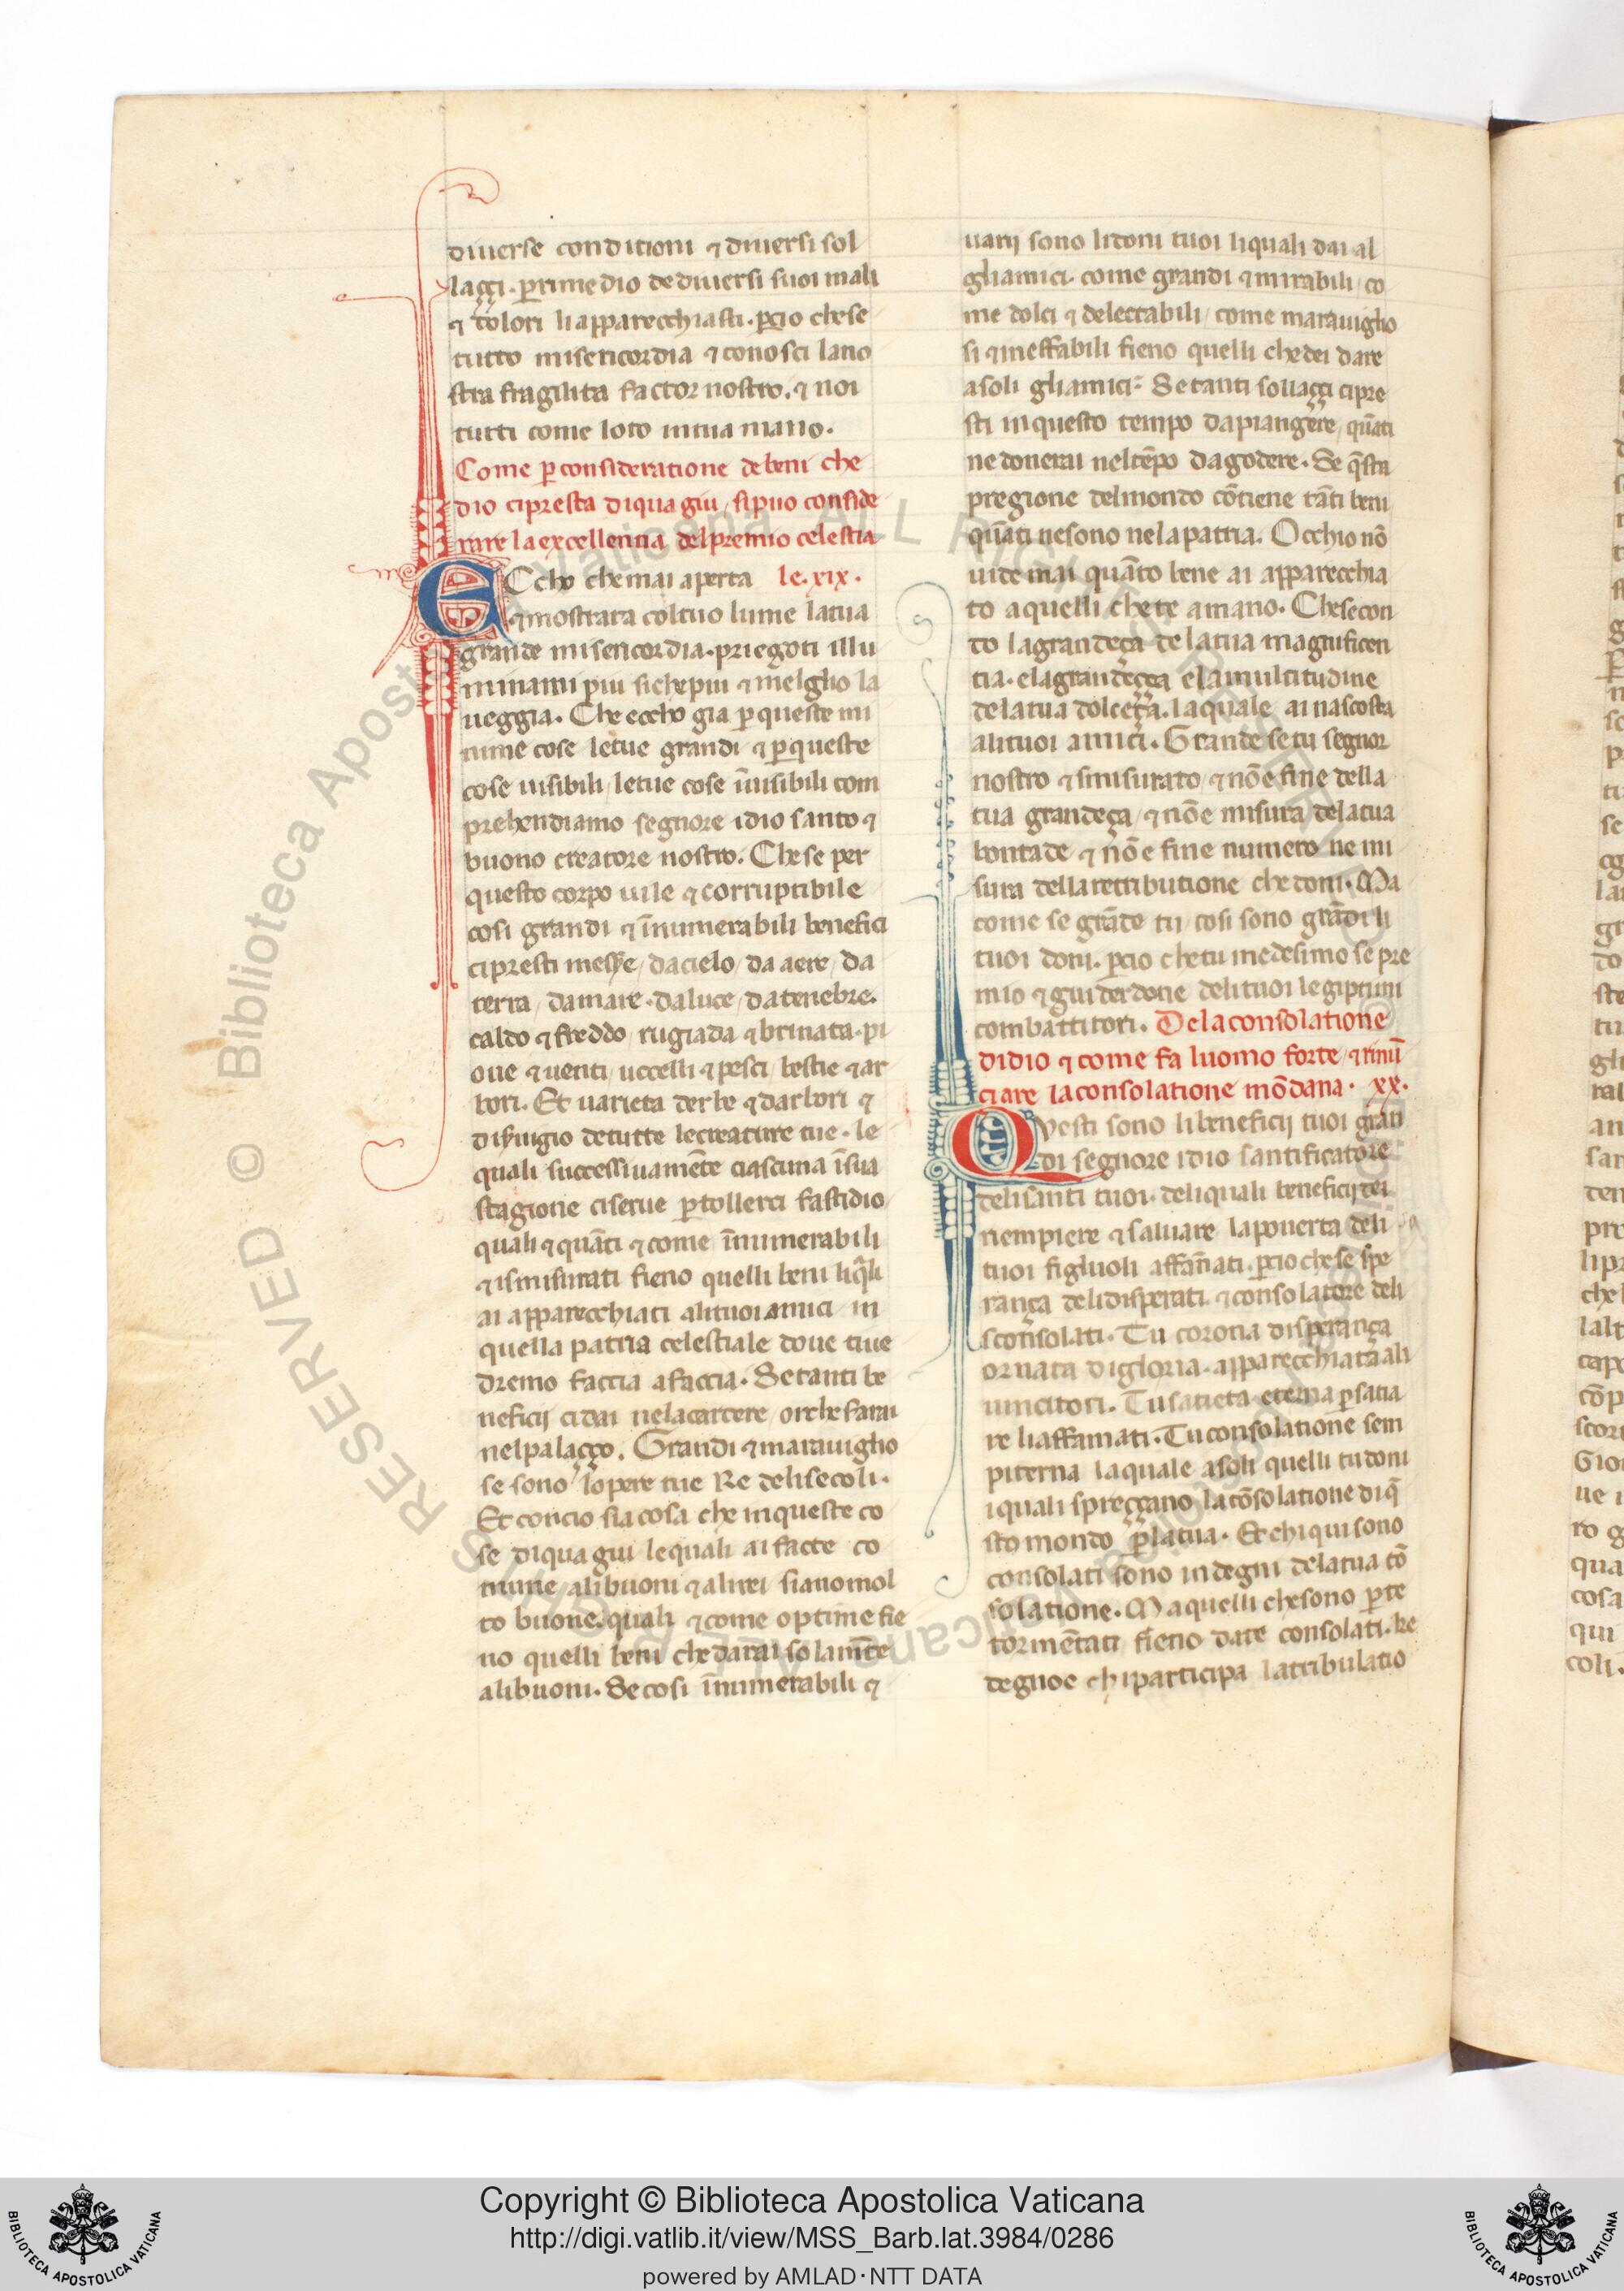 diuerse conditioni ⁊ diuersi sol
laççi. ꝑ rimedio de diuersi suoi mali
⁊ dolori li apparecchiasti. ꝑcio che se
tutto misericordia ⁊ conosci la no
stra fragilita factor nostro. ⁊ noi
tutti come loto in tua mano.
Come ꝑ consideratione de beni che
dio ci presta di qua giu / si puo conside
rare la excellentia del premio celestia
ECcho che mai aperta le. xix.
⁊ mostrata col tuo lume la tua
grande misericordia. priegoti illu
minami piu siche piu ⁊ meglho la
ueggia. Che eccho gia ꝑ queste mi
nime cose le tue grandi ⁊ ꝑ queste
cose uisibili / le tue cose īuisibili com
prehendiamo segnore idio santo ⁊
buono creatore nostro. Che se per
questo corpo uile ⁊ corruptibile
cosi grandi ⁊ īnumerabili benefici
ci presti messe / da cielo / da aere / da
terra / da mare. da luce / da tenebre.
caldo ⁊ freddo / rugiada ⁊ brinata. pi
oue ⁊ uenti / uccelli ⁊ pesci / bestie ⁊ ar
bori. Et uarieta derbe ⁊ darbori ⁊
di seruigio de tutte le creature tue. le
quali successiuamēte ciascuna ī sua
stagione ci serue ꝑ tollerci fastidio
quali ⁊ quāti ⁊ come īnumerabili
⁊ ismisurati fieno quelli beni li q̄li
ai apparecchiati ali tuoi amici in
quella patria celestiale doue tiue
dremo faccia a faccia. Se tanti be
neficij ci dai nela carcere / or che farai
nel palaçço. Grandi ⁊ marauiglio
se sono lopere tue Re deli secoli.
Et concio sia cosa che in queste co
se di qua giu le quali ai facte co
mune ali buoni ⁊ ali rei siano mol
to buone. quali ⁊ come optime fie
no quelli beni che darai solamēte
ali buoni. Se cosi īnumerabili ⁊
uarij sono li doni tuoi li quali dai al
gli amici. come grandi ⁊ mirabili / co
me dolci ⁊ delectabili / come marauiglio
si ⁊ ineffabili fieno quelli che dei dare
a soli gli amici: Se tanti sollaççi ci pre
sti in questo tempo da piangere / quāti
ne donerai nel tēpo da godere. Se q̄sta
pregione del mondo cōtiene tāti beni
quāti ne sono nela patria. Occhio nō
uide mai quāto bene ai apparecchia
to a quelli che te amano. Che secon
do la grandeça de la tua magnificen
tia. e la grandeçça e la multitudine
de la tua dolceçça. la quale ai nascosta
ali tuoi amici. Grande se tu segnor
nostro ⁊ smisurato / ⁊ nōe fine della
tua grandeça / ⁊ nōe misura de la tua
bontade ⁊ nōe fine numero ne mi
sura della retributione che doni. Ma
come se grāde tu cosi sono grādi li
tuoi doni. ꝑcio che tu medesimo se pre
mio ⁊ guiderdone deli tuoi legiptimi
combattitori. De la consolatione
di dio ⁊ come fa luomo forte / ⁊ rinū
ciare la consolatione mōdana. xx.
QVesti sono li beneficij tuoi gran
di segnore idio santificatore
deli santi tuoi. deli quali beneficij dei
riempiere ⁊ saluare la pouerta deli
tuoi figluoli affānati. ꝑcio che se spe
rança deli disperati. ⁊ consolatore deli
sconsolati. Tu corona di sperança
ornata di gloria. apparecchiata ali
uincitori. Tu satieta eterna ꝑ satia
re li affamati. Tu consolatione sem
piterna la quale a soli quelli tu doni
i quali spreççano la cōsolatione di q̄
sto mondo ꝑ la tua. Et chi qui sono
consolati sono indegni de la tua cō
solatione. Ma quelli che sono ꝑ te
tormētati fieno da te consolati. ke
degnoe chi participa la tribulatio
Copyright © Biblioteca Apostolica Vaticana
http://digi.vatlib.it/view/MSS_Barb.lat.3984/0286
powered by AMLAD·NTT DATA